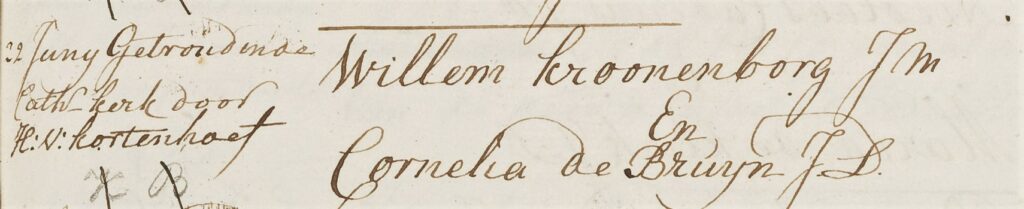 22 Juny Getroud in de
Cath kerk door
H: V: kortenhoef
Willem kroonenborg J M
En
Cornelia de Bruyn J D.